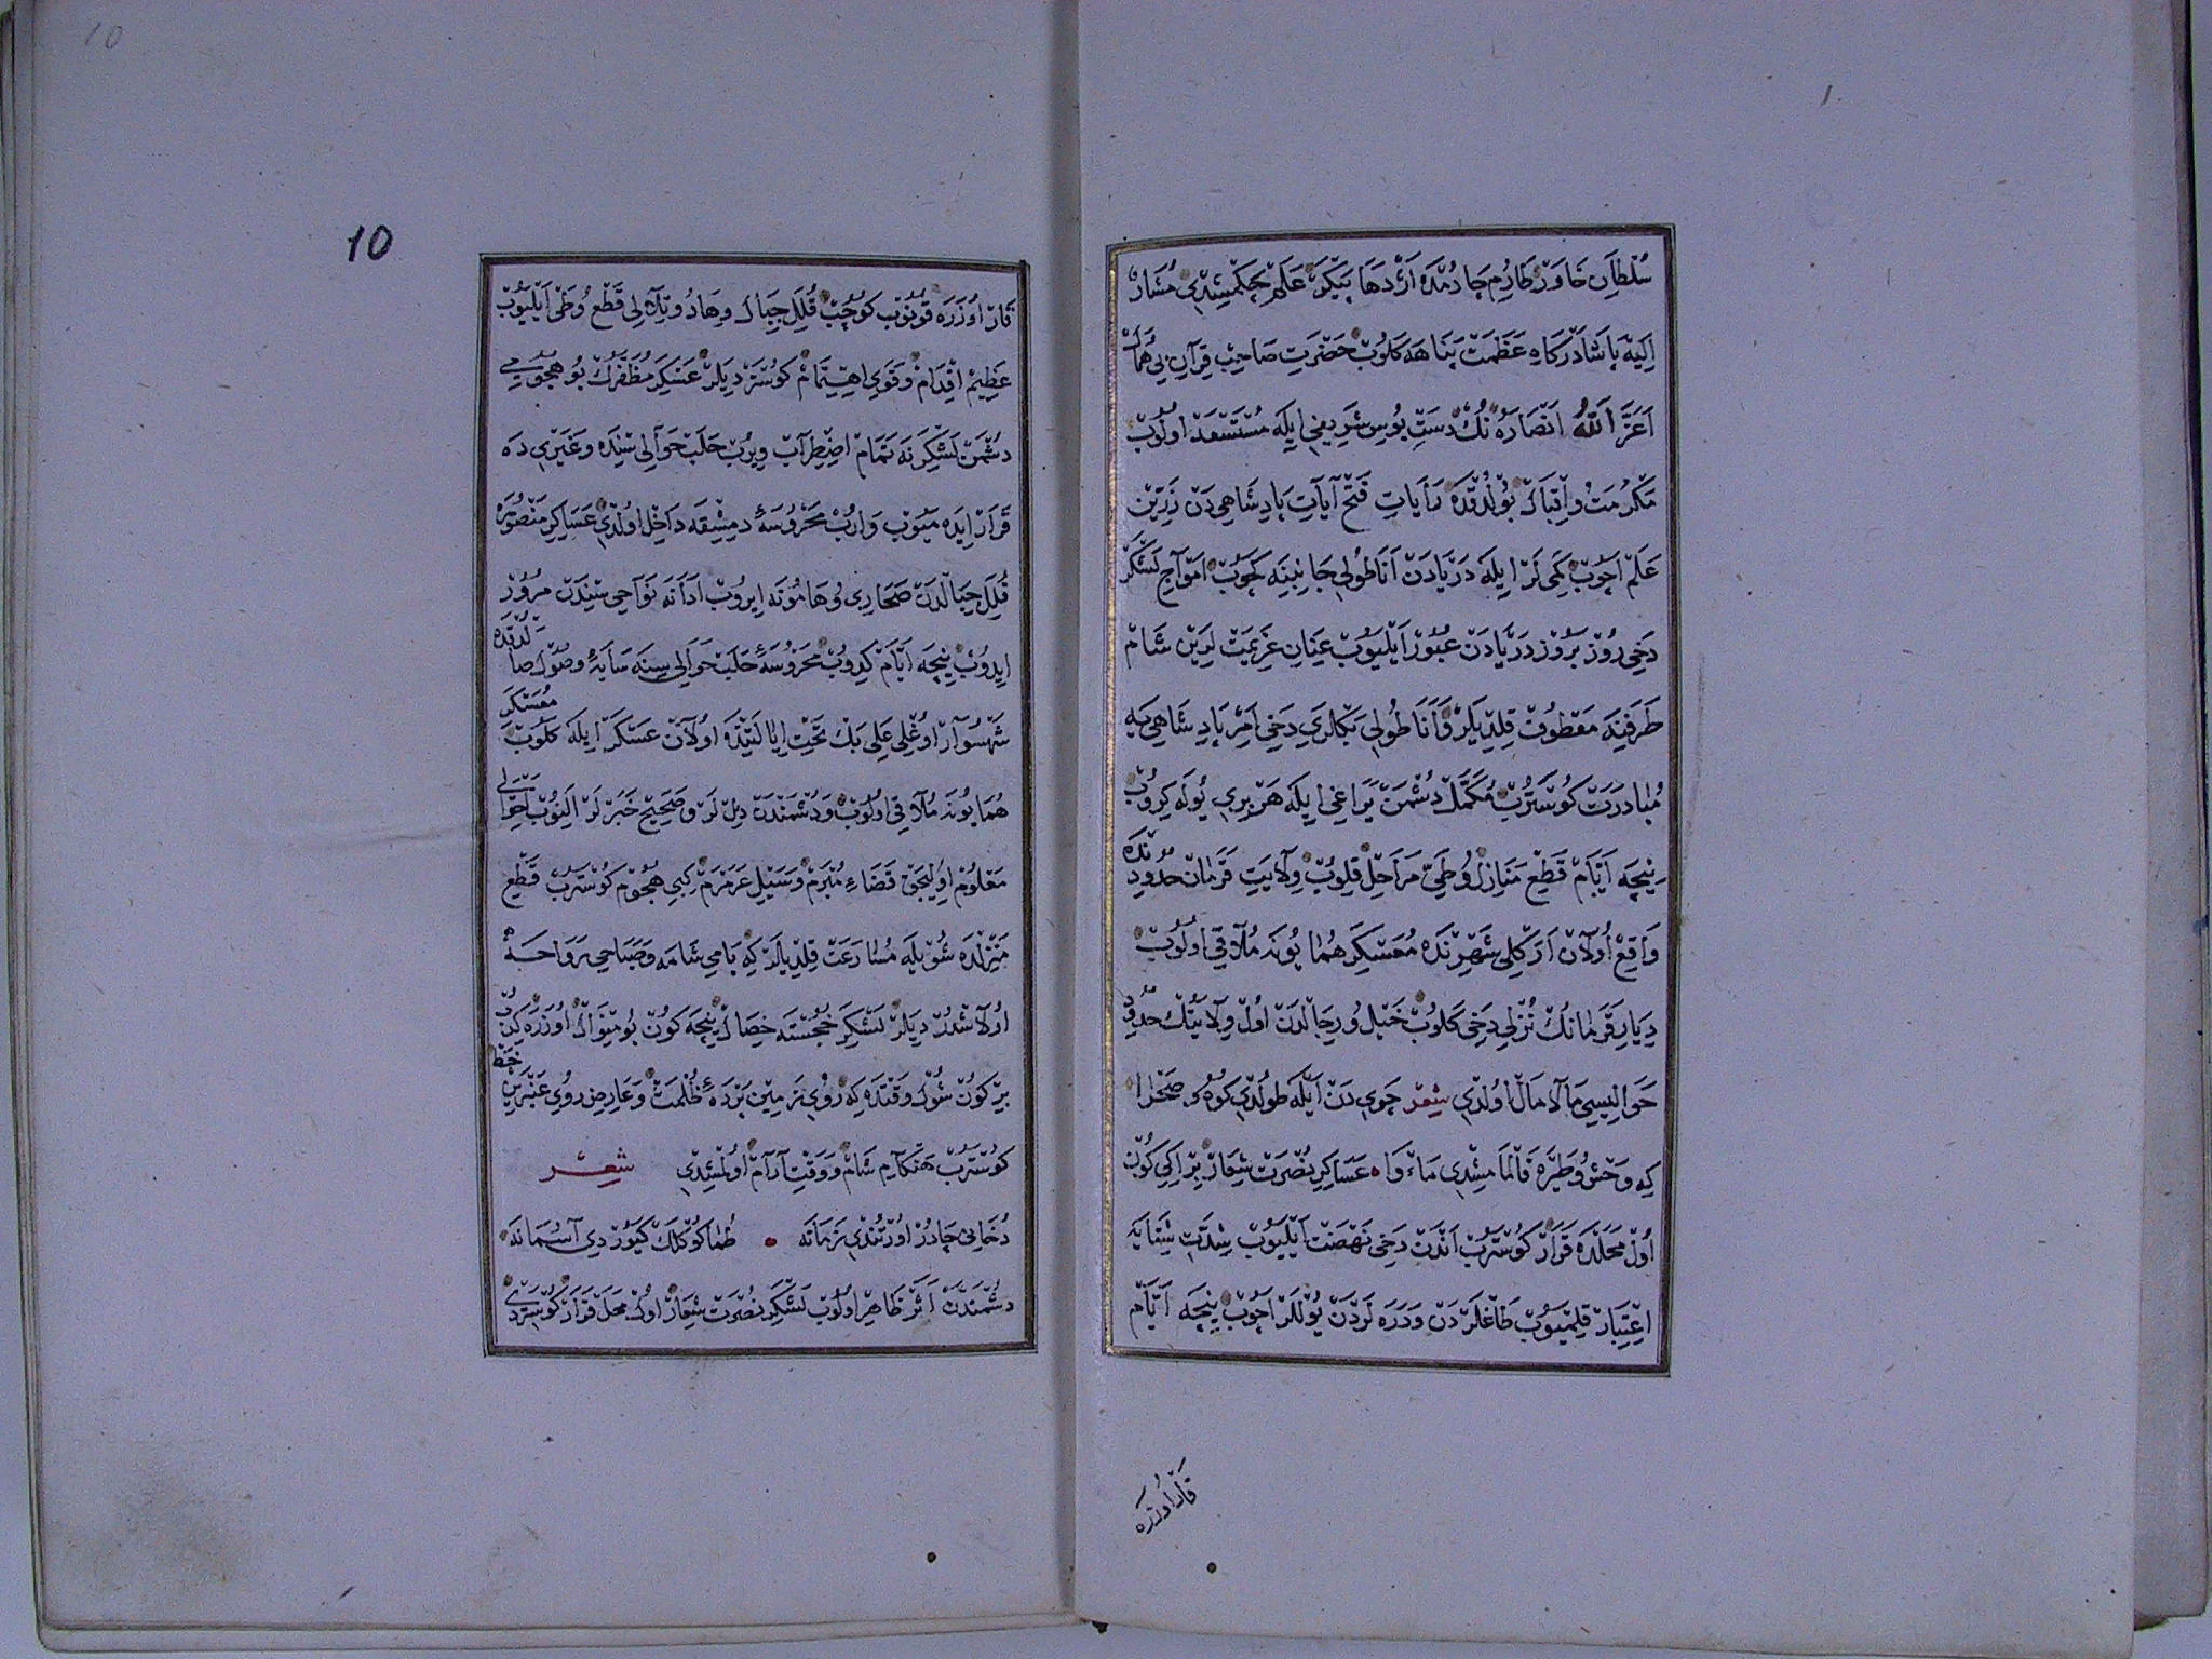 سُلْطَانِ خَاوَرْ طَارُمِ چَادُمْدَه اَژْدَهَا پَيْكَرْ عَلَمْ چَكْمِشِيدِى مُشَارٌ
اِلَيْهِ پَاشَا دَرْكَاهِ عَظَمَتْ پَنَاهَه كَلُوبْ حَضْرَتِ صَاحِبْ قِرَانِ بِى هُمَالْ
اَعَزَّ اللّٰهُ اَنْصَارَهُ نُكْ دَسْتِ بُوسِ شَرِيفِى اِيلَه مُسْتَسْعَدْ اُولُوبْ
مَكْرُمَتْ وُ اِقْبَالْ بُولْدُقْدَه رَايَاتِ فَتْحْ آيَاتِ پَادِشَاهِى دَنْ زَرِّينْ
عَلَمْ اَچُوبْ كَمِى لَرْ اِيلَه دَرْيَادَنْ اَنَاطُولِى جَانِبِنَه كَچُوبْ اَمْوَاجِ لَشْكَرْ
دَخِى رُوزْ بَرُوزْ دَرْيَادَنْ عُبُورْ اَيْلَيُوبْ عِنَانِ عَزِيمَتْ لَرِينْ شَامْ
طَرَفِنَه مَعْطُوفْ قِلْدِيلَرْ وَ اَنَاطُولِى بَكْلَرِى دَخِى اَمْرِ پَادِشَاهِى يَه
مُبَادَرَتْ كُوسْتَرُبْ مُكَمَّلْ دُشْمَنْ يَرَاغِى اِيلَه هَرْ بِرِى يُولَه كِرُوبْ
نِيچَه اَيَّامْ قَطْعِ مَنَازِلْ وُ طَىِّ مَرَاحِلْ قِلُوبْ وِلَايَتِ قَرَمَانْ حُدُودِنْدَه
وَاقِعْ اُولَانْ اَرَكْلِى شَهْرِنْدَه مُعَسْكَرِ هُمَايُونَه مُلَاقِى اُولُوبْ
دِيَارِ قَرَمَانُكْ نُزْلِى دَخِى كَلُوبْ خَيْلُ وُ رِجَالْدَنْ اُولْ وِلَايَتُكْ حُدُودِ
حَوَالِيسِى مَالَامَالْ اُولْدِى شِعْر چَرِى دَنْ اَيْلَه طُولْدِى كُوهُ صَحْرَا
كِه وَحْشُ وُ طَيْرَه قَالْمَامِشْدِى مَاءْوَا ۰ عَسَاكِرِ نُصْرَتْ شِعَارْ بِرْ اِكِى كُونْ
اُولْ مَحَلْدَه قَرَارْ كُوسْتَرُبْ اَنْدَنْ دَخِى نَهْضَتْ اَيْلَيُوبْ شِدَّتِ شِتَايَه
اِعْتِبَارْ قِلْمَيُوبْ طَاغْلَرْدَنْ وَ دَرَه لَرْدَنْ يُولْلَرْ اَچُوبْ نِيچَه اَيَّامْ
قَارْ اُوزَرَه
10
10
قَارْ اُوزَرَه قُونُوبْ كُوچُبْ قُلَلِ جِبَالْ وِهَادُ وُ تِلَالِى قَطْعُ وُ طَىْ اَيْلَيُوبْ
عَظِيمْ اِقْدَامْ وُ قَوِى اِهْتِمَامْ كُوسْتَرْدِيلَرْ عَسْكَرِ مُظَفَّرُكْ بُو هُجُومِى
دُشْمَنْ لَشْكَرِنَه تَمَامْ اِضْطِرَابْ وِيرُبْ حَلَبْ حَوَالِى سِنْدَه وَ غَيْرِى دَه
قَرَارْ اِيدَه مَيُوبْ وَارُبْ مَحْرُوسَهٔ دِمِشْقَه دَاخِلْ اُولْدِى عَسَاكِرِ مَنْصُورَه
قُلَلِ جِبَالْدَنْ صَحَارِى وُ هَامُونَه اِيرُوبْ اَدَانَه نَوَاحِى سِنْدَنْ مُرُورْ
اِيدُوبْ نِيچَه اَيَّامْ كِدُوبْ مَحْرُوسَهٔ حَلَبْ حَوَالِى سِنَه سَايَهٔ وُصُولْ صَالْدُقْدَه
شَهْسُوَارْ اُوغْلِى عَلِى بَكْ تَحْتِ اِيَالَتِنْدَه اُولَانْ عَسْكَرْ اِيلَه كَلُوبْ مُعَسْكَرِ
هُمَايُونَه مُلَاقِى اُولُوبْ وَ دُشْمَنْدَنْ دِلْ لَرْ وَ صَحِيحْ خَبَرْ لَرْ اَلِنُوبْ اَحْوَالِى
مَعْلُومْ اُولِيجَقْ قَضَاءِ مُبْرَمْ وُ سَيْلِ عَرَمْرَمْ كِبِى هُجُومْ كُوسْتَرُبْ قَطْعِ
مَنْزِلْدَه شُويْلَه مُسَارَعَتْ قِلْدِيلَرْ كِه بَامِى شَامَه وَ صَبَاحِى رَوَاحَه
اُولَاشْدُرْدِيلَرْ لَشْكَرِ خُجَسْتَه خِصَالْ نِيچَه كُونْ بُو مِنْوَالْ اُوزَرَه كِدُبْ
بِرْ كُونْ شُولْ وَقْتْدَه كِه رُوىِ زَمِينْ پَرْدَهٔ ظُلْمَتْ وَ عَارِضِ رُومِى عَنْبَرِينْ خَطْ
كُوسْتَرُبْ هَنْكَامِ شَامْ وَ وَقْتِ آرَامْ اُولْمِشِيدِى شِعْر
دُخَانِى چَادُرْ اُورْتُنْدِى زَمَانَه ۰ طُمَا كُوكْلَكْ كَيُورْدِى آسُمَانَه
دُشْمَنْدَنْ اَثَرْ ظَاهِرْ اُولُوبْ لَشْكَرِ نُصْرَتْ شِعَارْ اُولْ مَحَلْ قَرَارْ كُوسْتَرْدِى